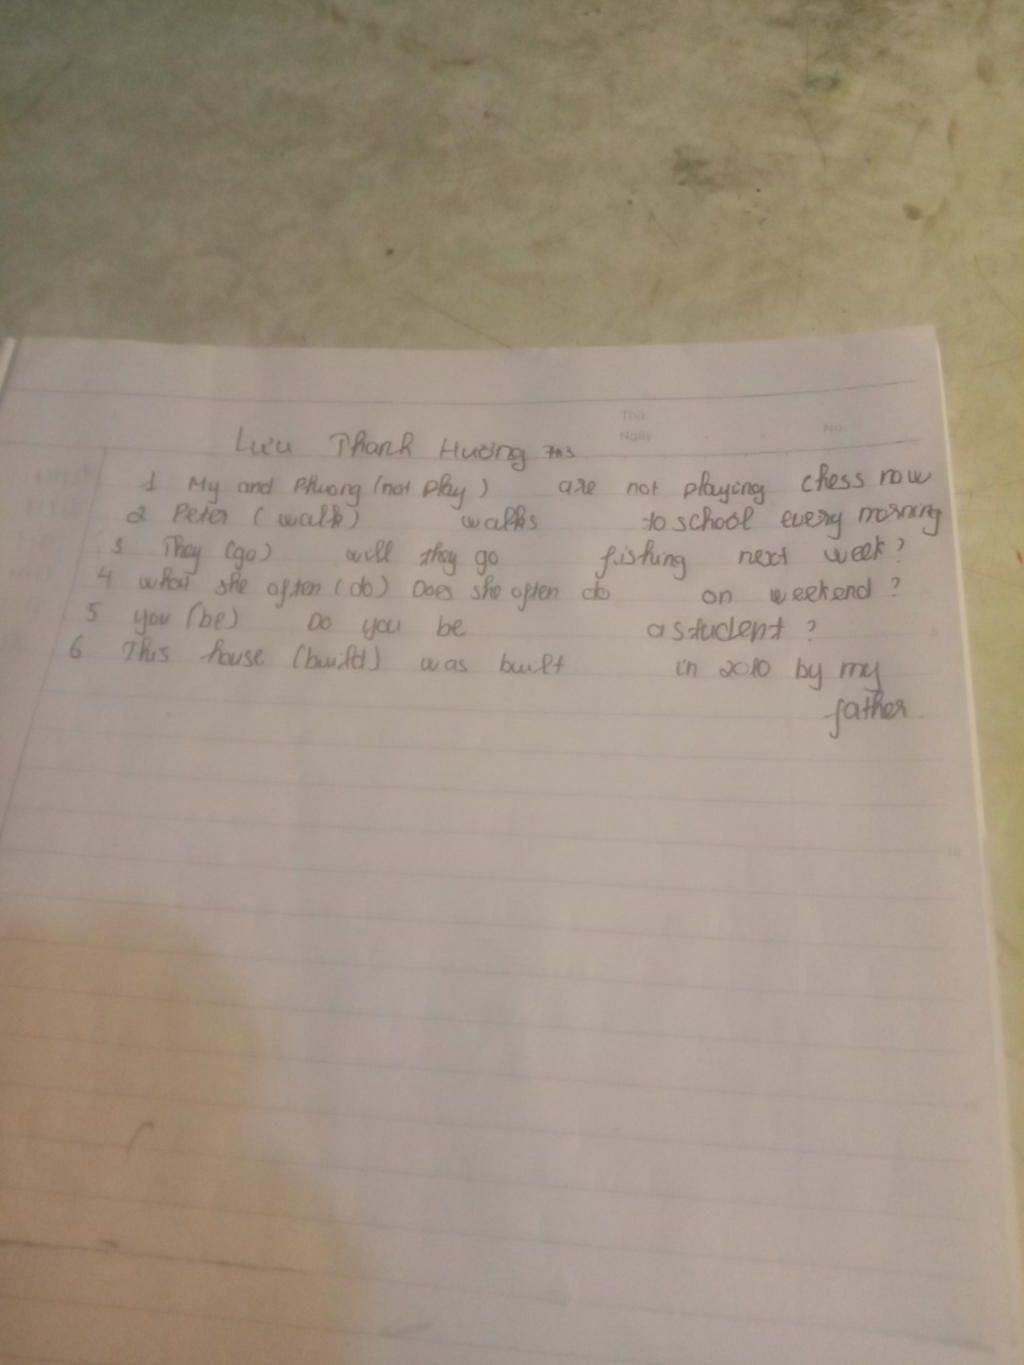 Thứ
Ngày No.
Lưu Thanh Hương 7A3
1 My and Phuong (not play) are not playing chess now
2 Peter (walk) walks to school every morning
3 They (go) will they go fishing next week?
4 what she often (do) Does she often do on weekend?
5 you (be) Do you be a student?
6 This house (build) was built in 2010 by my
father